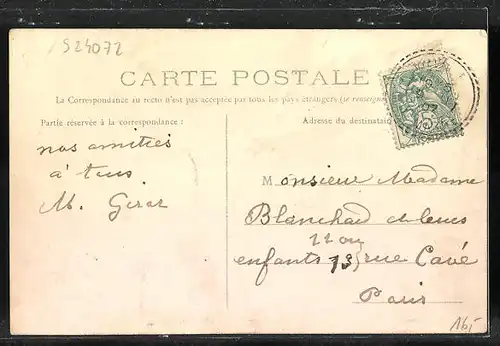 S24072
CARTE POSTALE
La Correspondance au recto n'est pas acceptée par tous les pays étrangers (se renseign
Partie réservée à la correspondance :
Adresse du destinatai
nos amitiés
à tous
M.
Monsieur Madame
Blanchad et leurs
11 ou
enfants 13 rue Cavé
Paris
16,-